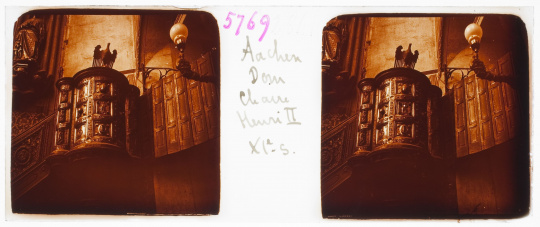 5769
Aachen
Dom
Chaire
Henri II
XIe s.